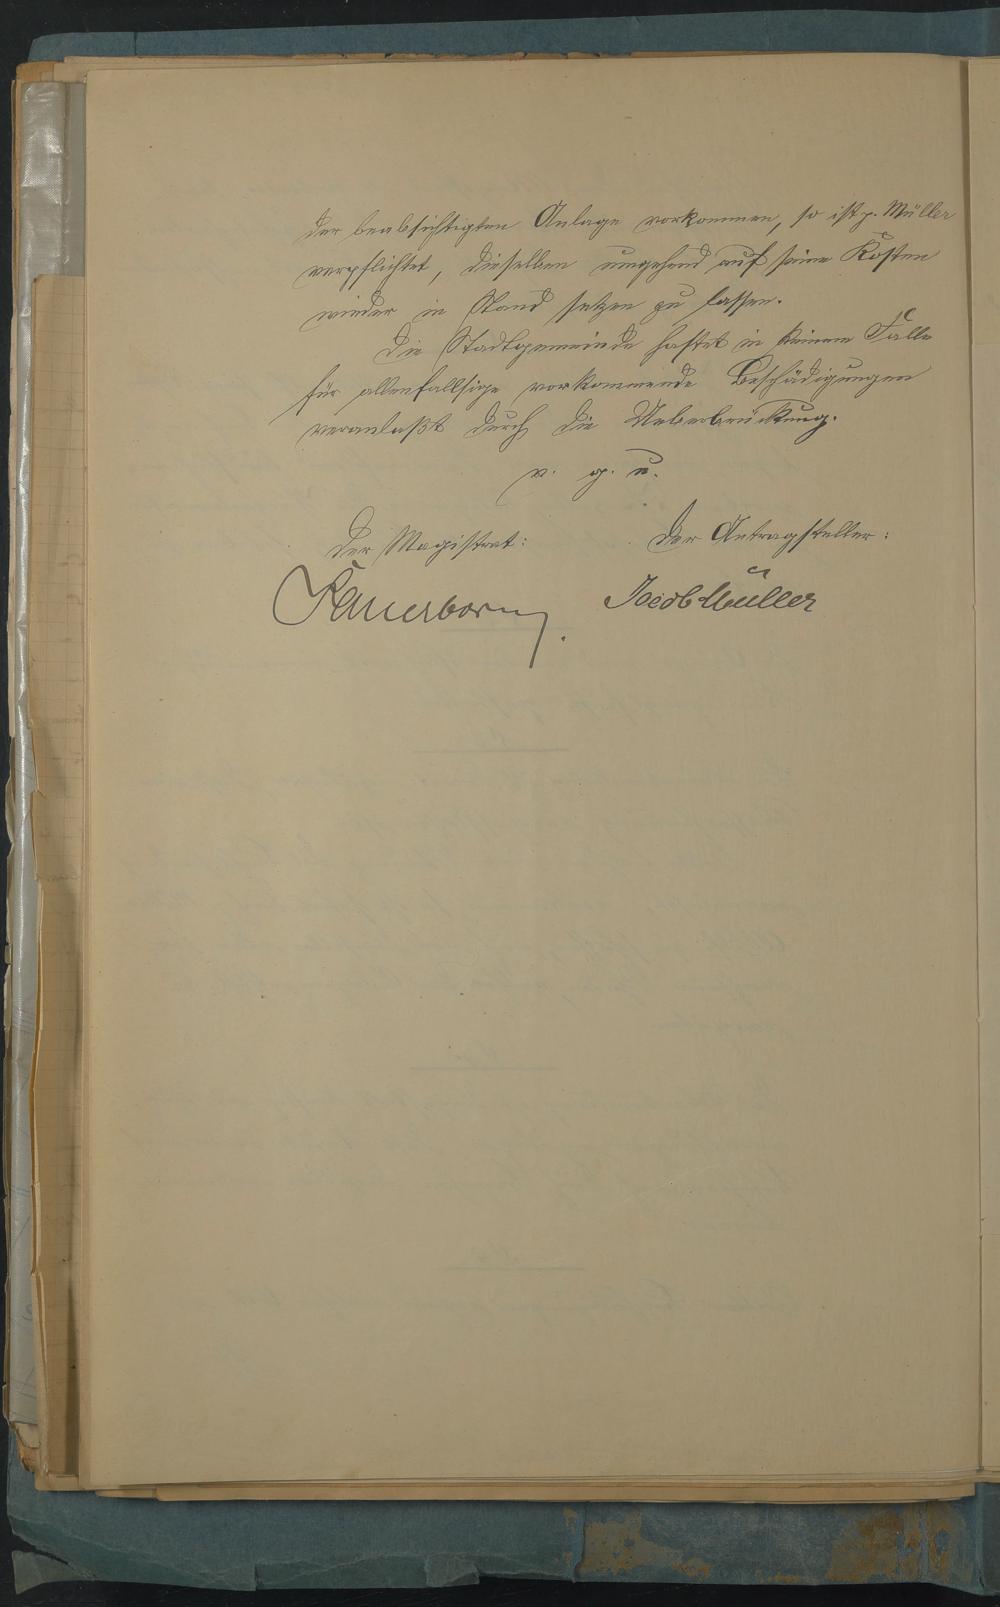 der beabsichtigten Anlage vorkommen, so ist p. Müller
verpflichtet, dieselben umgehend auf seine Kosten
wieder in Stand setzen zu lassen.
Die Stadtgemeinde haftet in keinem Falle
für allenfallsige vorkommende Beschädigungen
veranlaßt durch die Ueberbrückung.
v. g. u.
Der Magistrat: Der Antragsteller:
Kauerborn. Jacob Müller